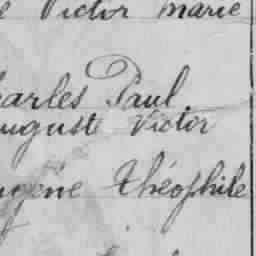 Victor Marie
Charles Paul
Auguste Victor
Eugène Théophile